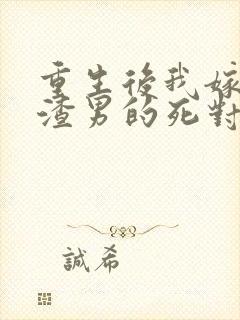 重生後我嫁
渣男的死對
誠希